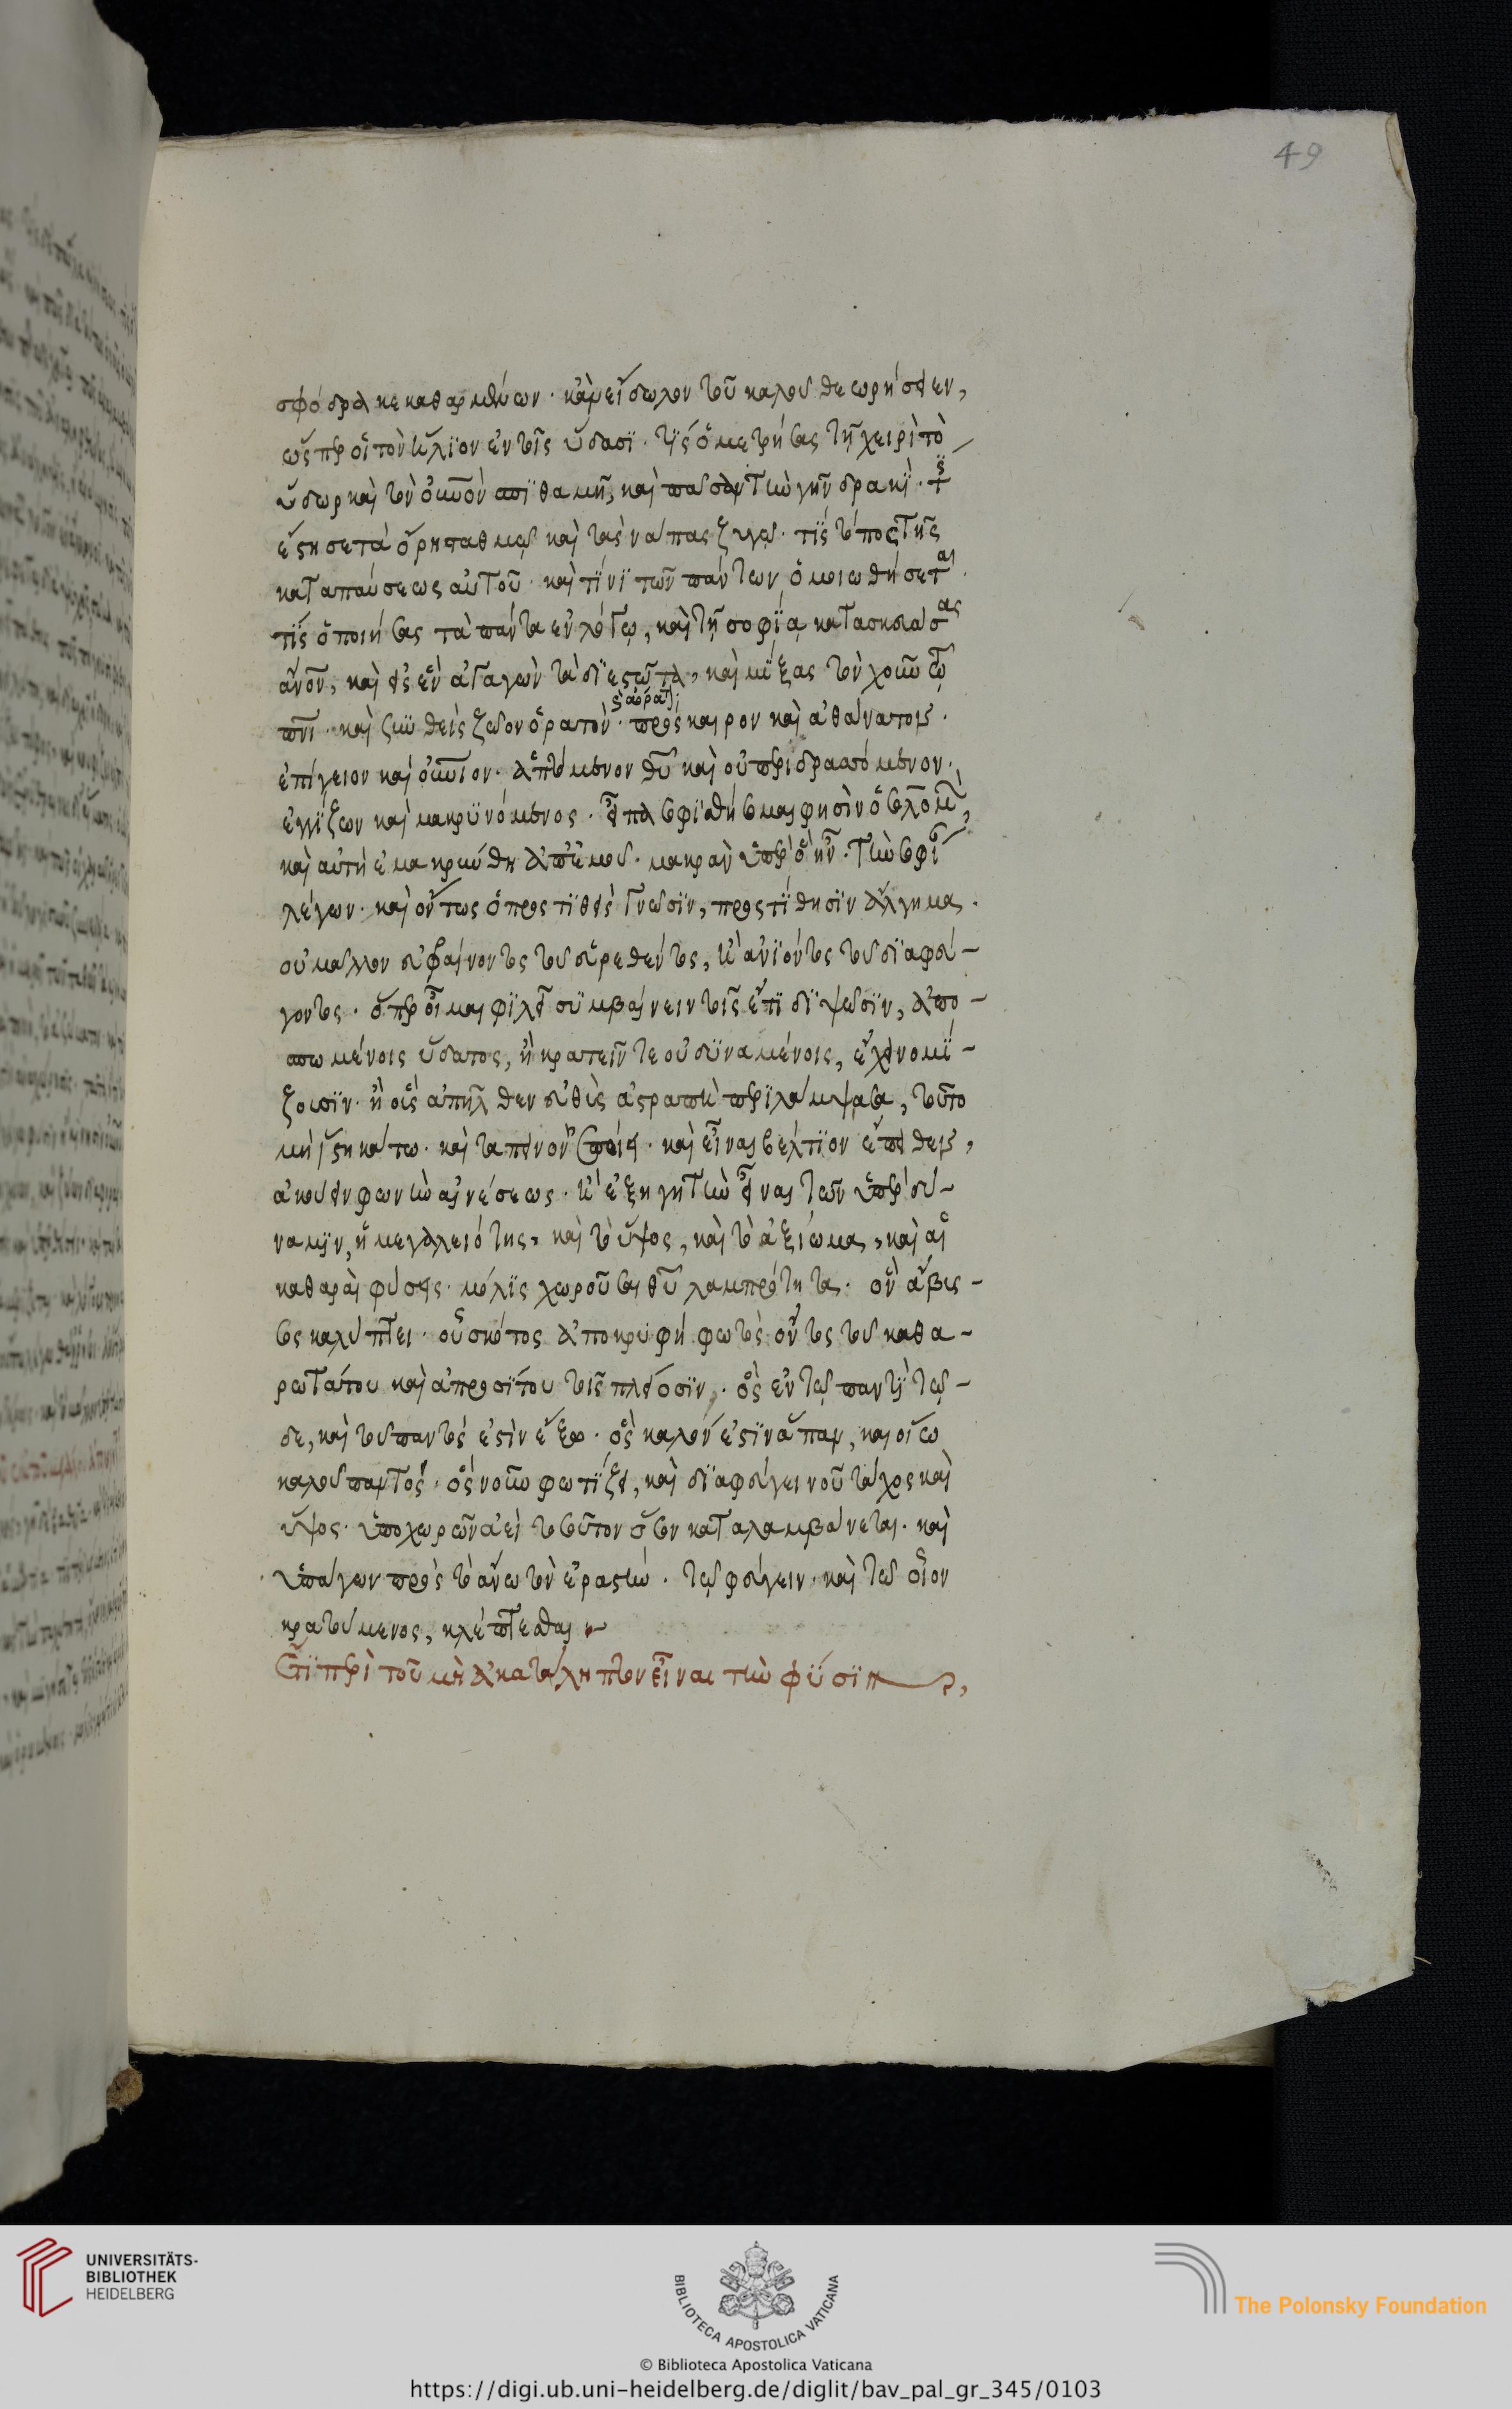 49
σφόδρα κεκαθαρμένων· κἂν εἴδωλον τοῦ καλοῦ θεωρήσειεν,
ὥσπερ οἱ τὸν ἥλιον ἐν τοῖς ὕδασι· τίς ὁ μετρήσας τῇ χειρὶ τὸ
ὕδωρ καὶ τὸν οὐνὸν σπιθαμῇ, καὶ πᾶσαν τὴν γῆν δρακί· τίς
ἔστησε τὰ ὄρη σταθμῷ καὶ τὰς νάπας ζυγῷ· τίς τόπος τῆς
καταπαύσεως αὐτοῦ· καὶ τίνι τῶν πάντων ὁμοιωθήσεται·
τίς ὁ ποιήσας τὰ πάντα ἐν λόγῳ, καὶ τῇ σοφίᾳ κατασκευάσας
ἄνον, καὶ εἰς ἓν ἀγαγὼν τὰ διεστῶτα, καὶ μίξας τὸν χοῦν τῷ
πνι· καὶ συνθεὶς ζῶον ὁρατὸν· πρόσκαιρον καὶ ἀθάνατον·
ς ἀόρατον
ἐπίγειον καὶ οὐνιον· ἁπτόμενον θυ καὶ οὐ περιδρασσόμενον·
ἐγγίζων καὶ μακρυνόμενος· εἶπα σοφισθήσομαι φησὶν ὁ σολομών,
καὶ αὐτὴ ἐμακρύνθη ἀπ' ἐμοῦ· μακρὰν ὑπὲρ ὃ ἦν· τὴν σοφίαν
λέγων· καὶ ὄντως ὁ προστιθεὶς γνῶσιν, προστίθησιν ἄλγημα·
οὐ μᾶλλον εὐφραίνοντος τοῦ εὑρεθέντος, ἢ ἀνιόντος τοῦ διαφεύ-
γοντος· ὅπερ οἶμαι φιλεῖ συμβαίνειν τοῖς ἔτι διψῶσιν, ἀπο-
σπωμένοις ὕδατος, ἢ κρατεῖν τε οὐ δυναμένοις, ἔχειν ὃ νομί-
ζουσιν· ἢ οἷς ἀπῆλθεν εὐθὺς ἀστραπὴ περιλάμψασα, τοῦτό
με ἵστη κάτω· καὶ ταπεινὸν ποιεῖ· καὶ εἶναι βέλτιον ἔπειθεν,
ἀκούειν φωνὴν αἰνέσεως· ἢ ἐξηγητὴν εἶναι τῶν ὑπὲρ δύ-
ναμιν, ἡ μεγαλειότης, καὶ τὸ ὕψος, καὶ τὸ ἀξίωμα, καὶ αἱ
καθαραὶ φύσεις· μόλις χωροῦσαι θυ λαμπρότητα· ὃν ἄβυσ-
σος καλύπτει· οὗ σκότος ἀποκρυφὴ φωτὸς ὄντος τοῦ καθα-
ρωτάτου καὶ ἀπροσίτου τοῖς πλείοσιν· ὃς ἐν τῷ παντὶ τῷ-
δε, καὶ τοῦ παντός ἐστιν ἔξω· ὃς καλόν ἐστιν ἅπαν, καὶ ἄνω
καλοῦ παντός· ὃς νοῦν φωτίζει, καὶ διαφεύγει νοῦ τάχος καὶ
ὕψος· ὑποχωρῶν ἀεὶ τοσοῦτον ὅσον καταλαμβάνεται· καὶ
ὑπάγων πρὸς τὸ ἄνω τὸν ἐραστήν· τῷ φεύγειν· καὶ τῷ οἷον
κρατούμενος, κλέπτεσθαι·
Ἔτι περὶ τοῦ μὴ ἀκατάληπτον εἶναι τὴν φύσιν
UNIVERSITÄTS-
BIBLIOTHEK
HEIDELBERG
BIBLIOTECA APOSTOLICA VATICANA
The Polonsky Foundation
© Biblioteca Apostolica Vaticana
https://digi.ub.uni-heidelberg.de/diglit/bav_pal_gr_345/0103